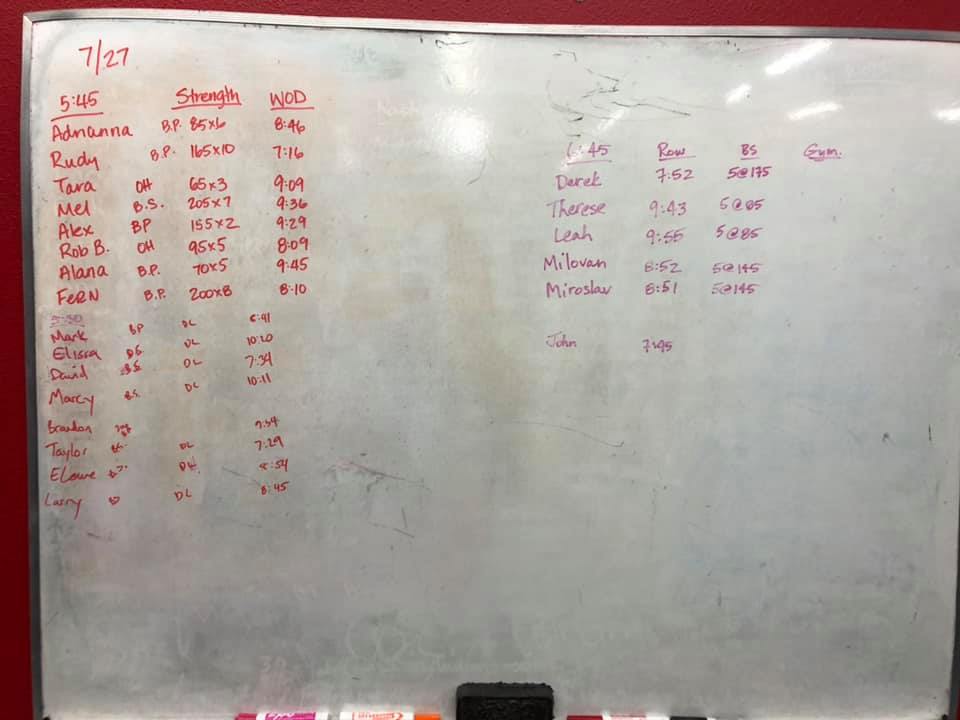 7/27
5:45 Strength WOD
Adrianna B.P. 85x6 8:46
Rudy B.P. 165x10 7:16
Tara OH 65x3 9:09
Mel B.S. 205x7 9:36
Alex BP 155x2 9:29
Rob B. OH 95x5 8:09
Alana B.P. 70x5 9:45
FERN B.P. 200x8 8:10
Mark BP DL
Elissa DL 10:20
David BS DL 7:34
Marcy BS. DL 10:11
Brandon
Taylor DL 7:29
ELowe 8:54
Larry DL 8:45
6:45 Row BS Gym.
Derek 7:52 5@175
Therese 9:43
Leah 9:55 5@85
Milovan 8:52 5@145
Miroslav 8:51 5@145
John 7:45